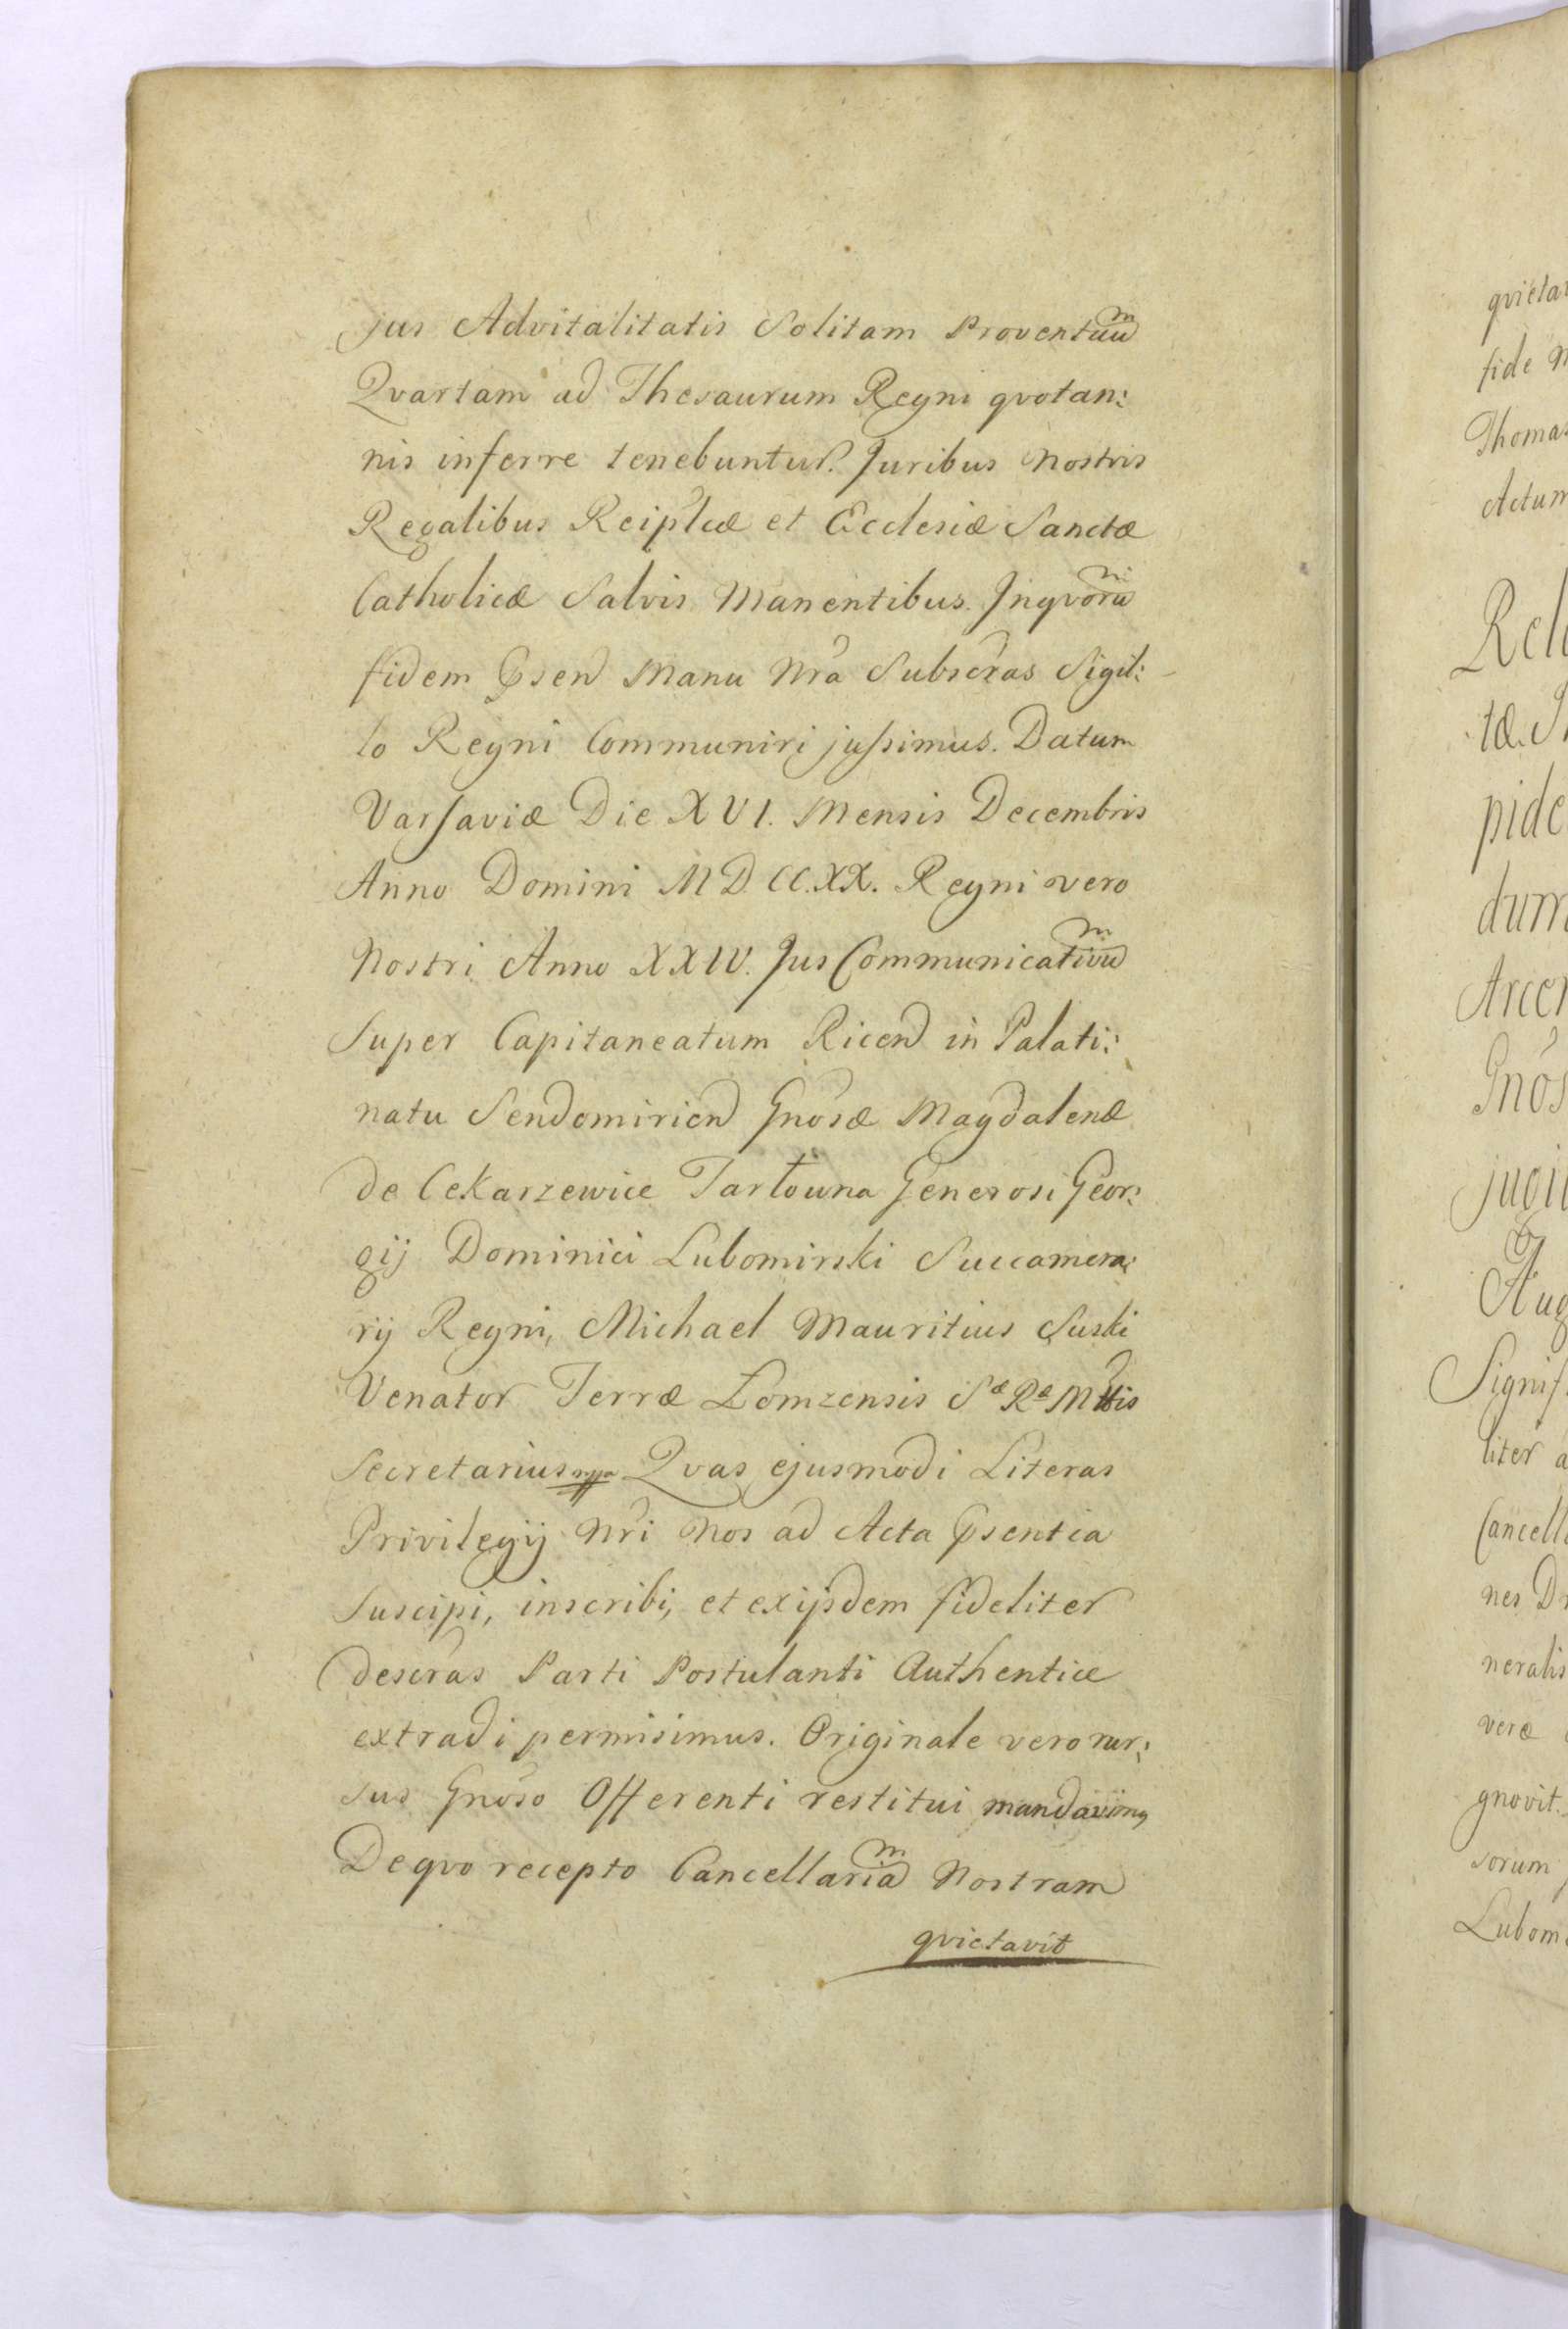 jus Advitalitatis Solitam Proventuum
Qvartam ad Thesaurum Regni qvotan:
nis inferre tenebuntur. Juribus Nostris
Regalibus Reiplcæ et Ecclesiæ Sanctæ
Catholicæ Salvis Manentibus. Inqvorum
fidem Psen Manu Nra Subscras Sigil:
lo Regni Communiri jussimus. Datum
Varsaviæ Die XVI. Mensis Decembris
Anno Domini MD.CC.XX. Regni vero
Nostri Anno XXIV. Jus Communicativum
Super Capitaneatum Ricen in Palati:
natu Sendomirien Gnosæ Magdalenæ
de Cekarzewice Tarłowna Generosi Geor:
gij Dominici Lubomirski Succamera:
rij Regni, Michael Mauritius Suski
Venator Terræ Łomzensis Sæ Ræ Mttis
Secretarius mpp Qvas ejusmodi Literas
Privilegij Nri Nos ad Acta Psentia
Suscipi, inscribi, et exijsdem fideliter
descras Parti Postulanti Authentice
extradi permisimus. Originale vero rur:
sus Gnoso Offerenti restitui mandavimus
Deqvo recepto Cancellariam Nostram
qvietavit
qvieta
fide
Thomas
Actum
Rela
tæ.
pide
dum
Arcen
Gnos
judi
Aug
Signif
liter a
Cancella
nes
neralis
veræ
gnovit.
sorum
Lubom